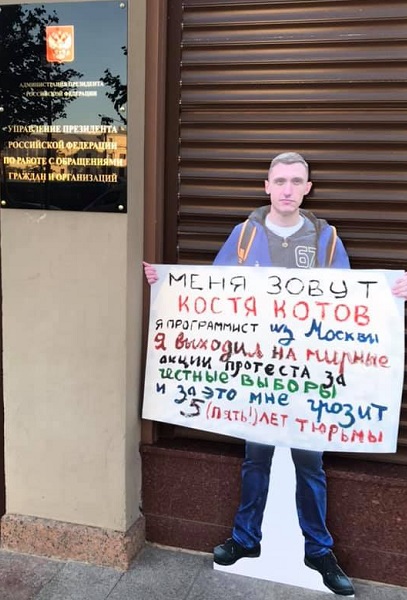 АДМИНИСТРАЦИЯ ПРЕЗИДЕНТА
РОССИЙСКОЙ ФЕДЕРАЦИИ
УПРАВЛЕНИЕ ПРЕЗИДЕНТА
РОССИЙСКОЙ ФЕДЕРАЦИИ
ПО РАБОТЕ С ОБРАЩЕНИЯМИ
ГРАЖДАН И ОРГАНИЗАЦИЙ
67
МЕНЯ ЗОВУТ
КОСТЯ КОТОВ
Я ПРОГРАММИСТ из Москвы
Я ВЫХОДИЛ НА мирные
акции протеста за
честные выборы
и за это мне грозит
5 (пять!) ЛЕТ ТЮРЬМЫ